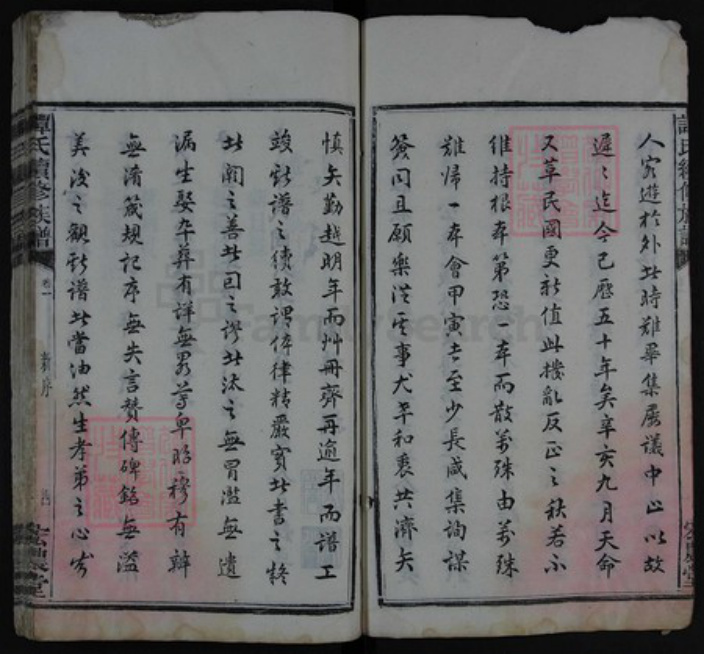 譚氏續修族譜
人客遊於外此時難畢集屢議中止以故
遲遲迄今已歷五十年矣辛亥九月天命
又革民國更新值此撥亂反正之秋若不
維持根本第恐一本而散萬殊由萬殊
難歸一本會甲寅去至少長咸集詢謀
僉同且願樂從事矢年和衷共濟矢
慎矢勤越明年而艸冊齊再逾年而譜工
竣新譜之續敢謂体律精嚴實此書之
此闕之善此因之謬此汰之無冒濫無遺
漏生娶卒葬有詳無畧尊卑昭穆有辨
無淆箴規記序無失言贊傳碑銘無濫
美後之觀新譜此當油然生孝弟之心
譚氏續修族譜
卷一
新序
堂
FamilySearch